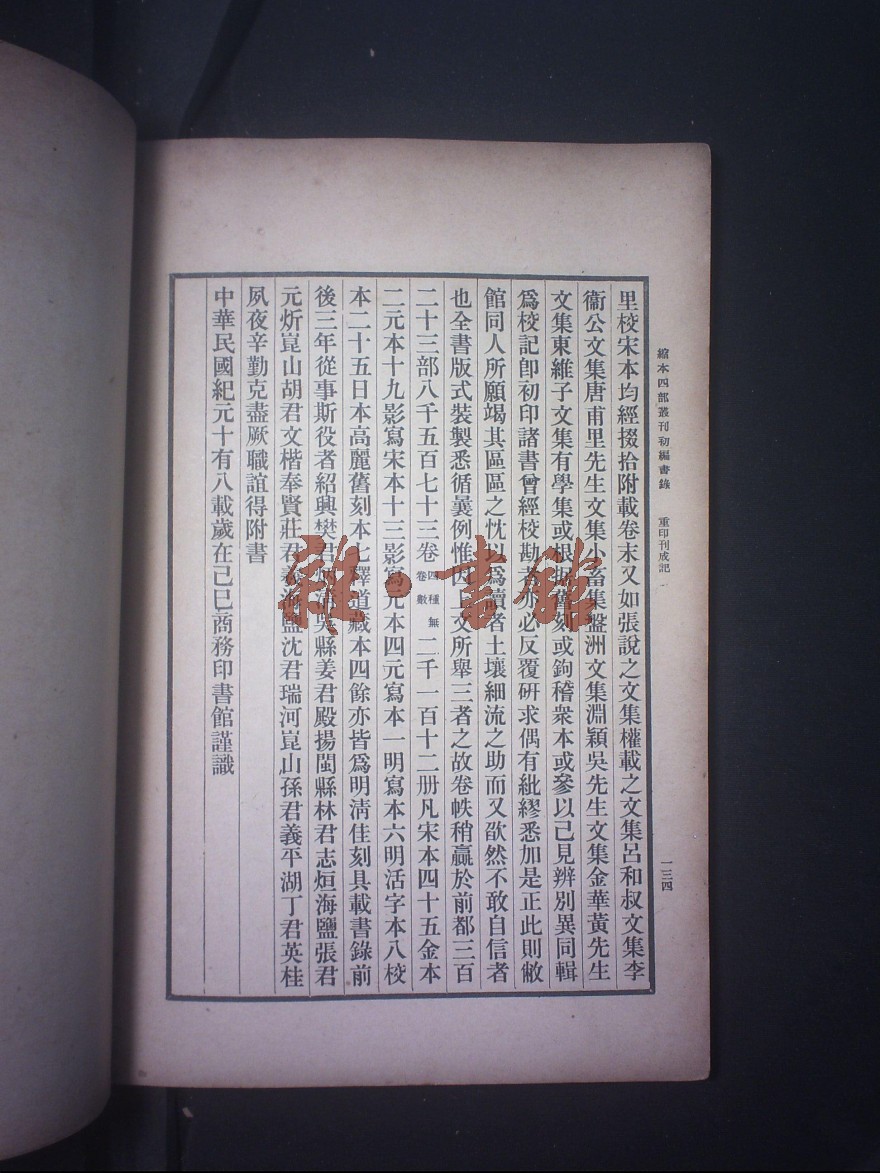 縮本四部叢刊初編書錄　重印刊成記　一三四
里校宋本均經掇拾附載卷末又如張說之文集權載之文集呂和叔文集李
衞公文集唐甫里先生文集小畜集盤洲文集淵穎吳先生文集金華黃先生
文集東維子文集有學集或根據舊刻或鉤稽衆本或參以己見辨別異同輯
爲校記卽初印諸書曾經校勘者亦必反覆硏求偶有紕繆悉加是正此則敝
館同人所願竭其區區之忱以爲讀者土壤細流之助而又欿然不敢自信者
也全書版式裝製悉循曩例惟因上文所舉三者之故卷帙稍贏於前都三百
二十三部八千五百七十三卷四種無卷數二千一百十二册凡宋本四十五金本
二元本十九影寫宋本十三影寫元本四元寫本一明寫本六明活字本八校
本二十五日本高麗舊刻本七釋道藏本四餘亦皆爲明淸佳刻具載書錄前
後三年從事斯役者紹興樊君炳淸吳縣姜君殿揚閩縣林君志烜海鹽張君
元炘崑山胡君文楷奉賢莊君羲海鹽沈君瑞河崑山孫君義平湖丁君英桂
夙夜辛勤克盡厥職誼得附書
中華民國紀元十有八載歲在己巳商務印書館謹識
雜·書館